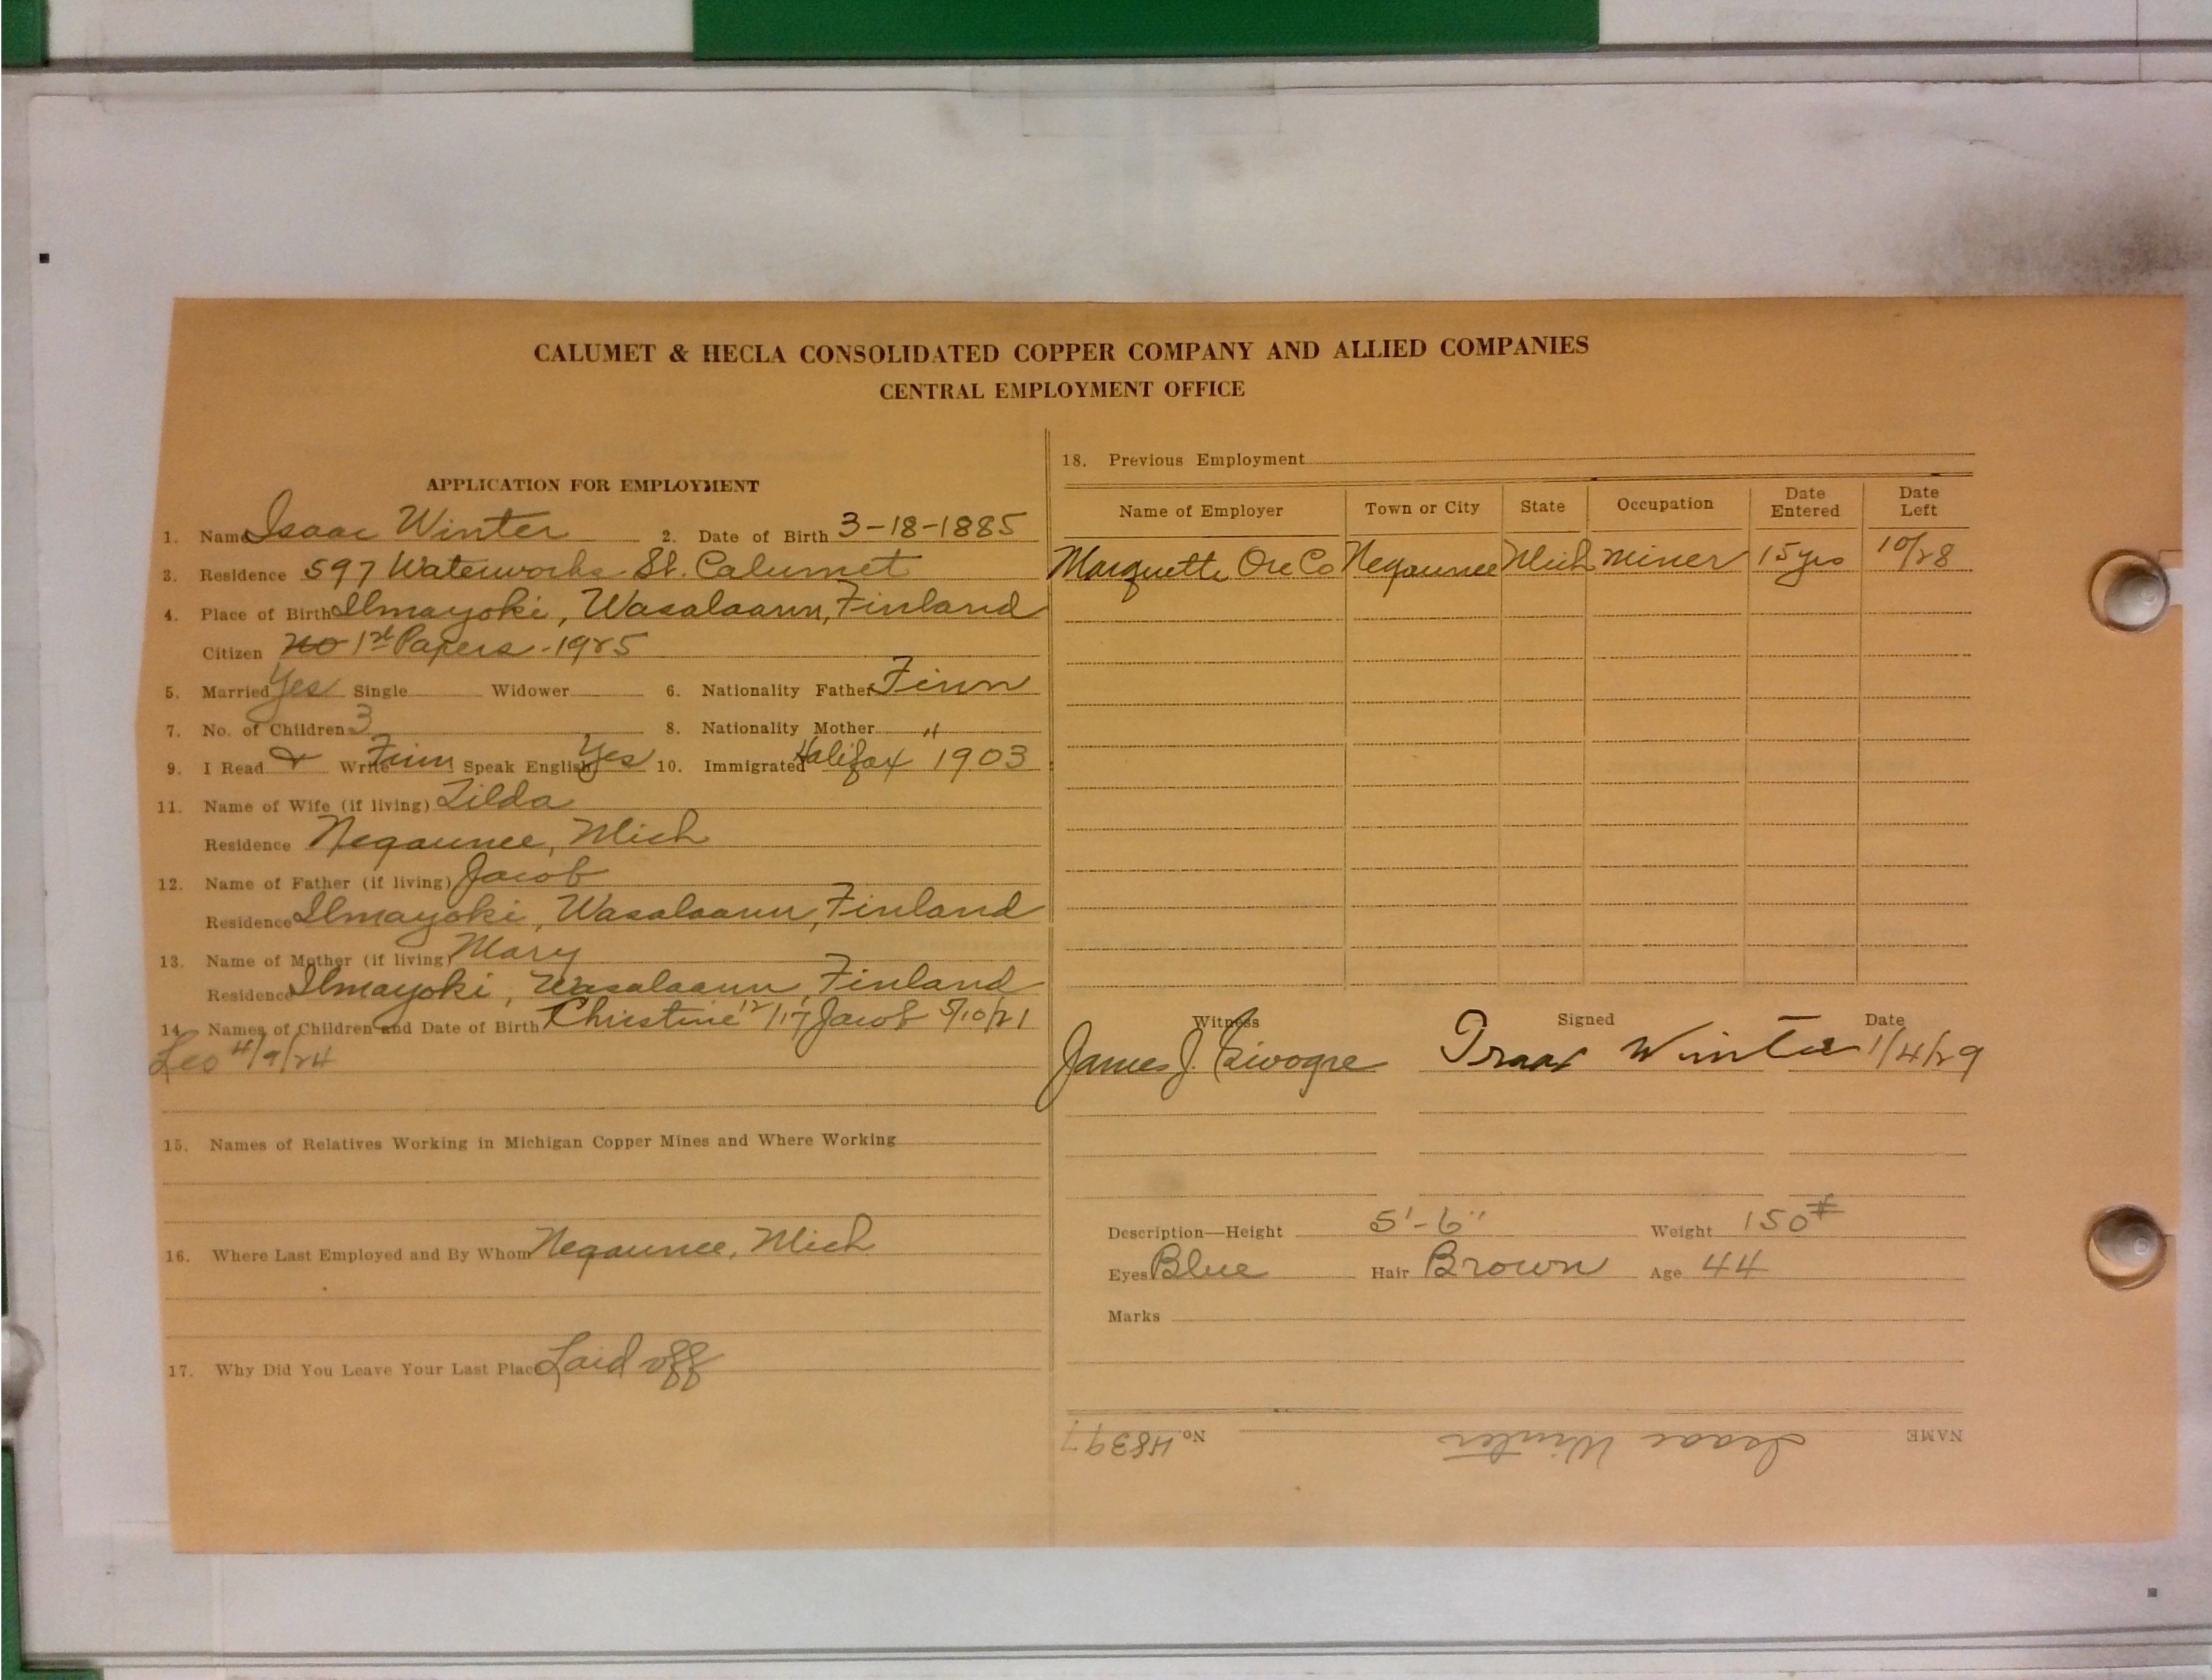 CALUMET & HECLA CONSOLIDATED COPPER COMPANY AND ALLIED COMPANIES
CENTRAL EMPLOYMENT OFFICE
APPLICATION FOR EMPLOYMENT
1. Name Isaac Winter 2. Date of Birth 3-18-1885
3. Residence 597 Waterworks St. Calumet
4. Place of Birth Ilmayoki, Wasalaann, Finland
Citizen no 1st Papers - 1925
5. Married Yes Single Widower 6. Nationality Father Finn
7. No. of Children 3 8. Nationality Mother "
9. I Read & Write Finn Speak English Yes 10. Immigrated Halifax 1903
11. Name of Wife (if living) Lilda
Residence Negaunee, Mich
12. Name of Father (if living) Jacob
Residence Ilmayoki, Wasalaann, Finland
13. Name of Mother (if living) Mary
Residence Ilmayoki, Wasalaann, Finland
14. Names of Children and Date of Birth Christine 12/17 Jacob 5/10/21
Leo 4/9/24
15. Names of Relatives Working in Michigan Copper Mines and Where Working
16. Where Last Employed and By Whom Negaunee, Mich
17. Why Did You Leave Your Last Place Laid off
18. Previous Employment
Name of Employer Town or City State Occupation Date Entered Date Left
Marquette Ore Co Negaunee Mich Miner 15 yrs 10/28
Witness Signed Date
James J. Isaac Winter 1/4/29
Description—Height 5'-6" Weight 150#
Eyes Blue Hair Brown Age 44
Marks
NAME Isaac Winter No. 48397